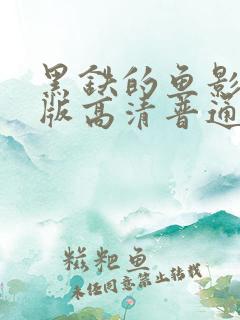 黑鉄的鱼影
版高清普通
糍粑鱼
未经同意禁止转载